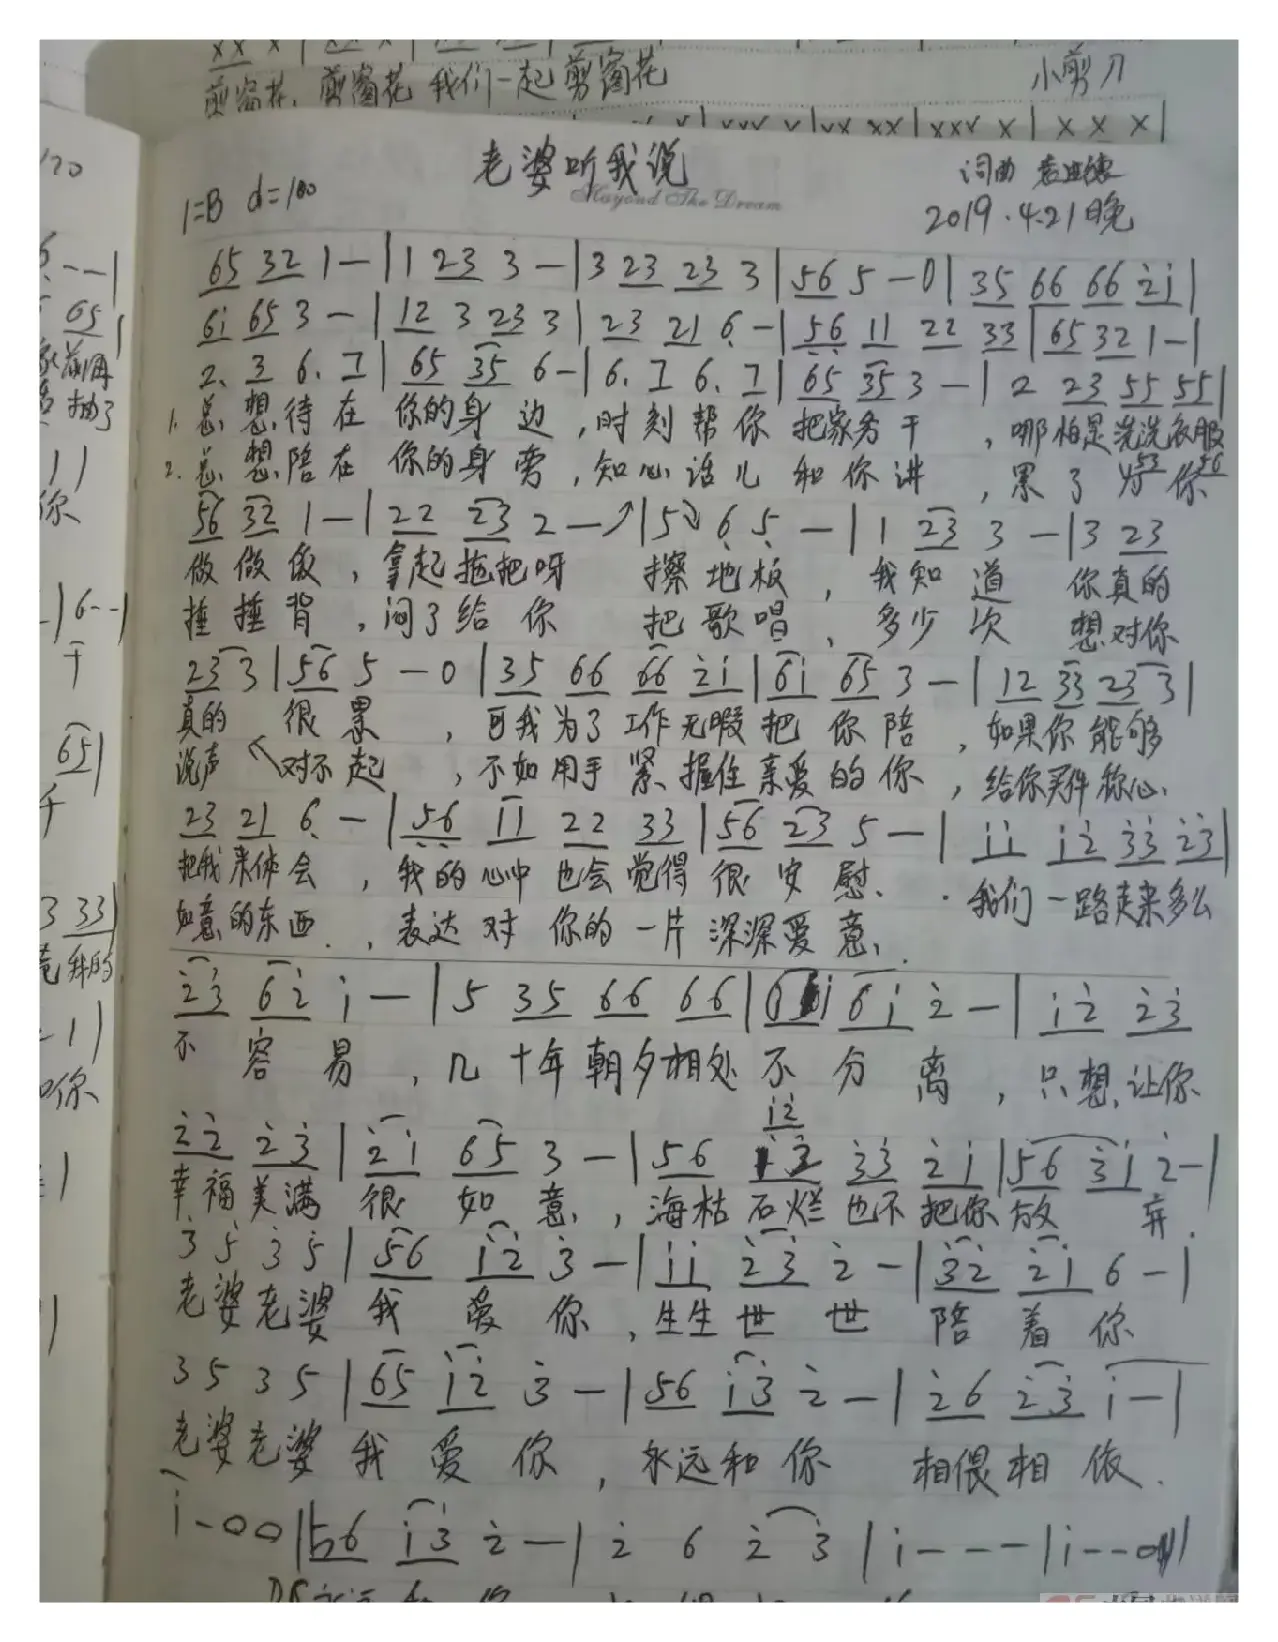 剪窗花，剪窗花 我们一起剪窗花 小剪刀
x x x|
老婆听我说
1=B d=100
The Dream
词曲
2019.4.21晚
65 32 1 — | 1 23 3 — | 3 23 23 3 | 56 5 — 0 | 35 66 66 2̇1̇ |
61̇ 65 3 — | 12 3 23 3 | 23 21 6̣ — | 5̣6̣ 11 22 33 | 65 32 1 — |
2. 3 6. 7 | 65 35 6 — | 6. 7 6. 7 | 65 35 3 — | 2 23 55 55 |
1. 总想待在 你的身边，时刻帮你 把家务干，哪怕是洗洗衣服
2. 总想陪在 你的身旁，知心话儿 和你讲，累了 为 你
53 56
56 32 1 — | 22 23 2 — ↗ | 5 6̣ 5̣ — | 1 23 3 — | 3 23
做做饭，拿起拖把呀 擦地板，我知道 你真的
捶捶背，闷了给你 把歌唱，多少次 想对你
23 3 | 56 5 — 0 | 35 66 66 2̇1̇ | 61̇ 65 3 — | 12 33 23 3 |
真的 很累，可我为了工作无暇把你陪，如果你能够
说声 对不起，不如用手紧握住亲爱的你，给你买件称心
23 21 6̣ — | 5̣6̣ 11 22 33 | 56 23 5 — | 1̇1̇ 1̇2̇ 3̇3̇ 2̇3̇ |
把我来体会，我的心中也会觉得很安慰. 我们一路走来多么
如意的东西，表达对你的一片深深爱意.
2̇3̇ 62̇ 1̇ — | 5 35 66 66 | 6 1̇ 61̇ 2̇ — | 1̇2̇ 2̇3̇
不容易，几十年朝夕相处不分离，只想让你
1̇2̇
2̇2̇ 2̇3̇ | 2̇1̇ 65 3 — | 56 3̇3̇ 2̇1̇ | 56 3̇1̇ 2̇ — |
幸福美满 很如意，海枯石烂也不把你放弃.
3̇ 5̇ 3̇ 5̇ | 56 1̇2̇ 3̇ — | 1̇1̇ 2̇3̇ 2̇ — | 3̇2̇ 2̇1̇ 6 — |
老婆老婆我爱你，生生世世陪着你
3 5 3 5 | 65 1̇2̇ 3̇ — | 56 1̇3̇ 2̇ — | 2̇6 2̇3̇ 1̇ — |
老婆老婆我爱你，永远和你 相偎相依.
1̇ - 0 0 | 56 1̇3̇ 2̇ — | 2̇ 6 2̇ 3̇ | 1̇ - - - | 1̇ - - 0 |